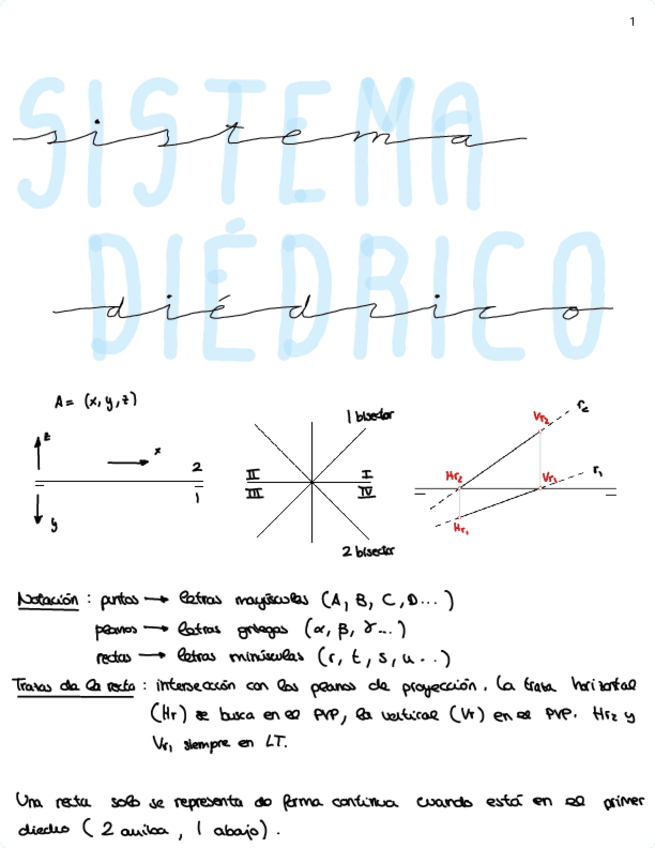 1
SISTEMA
sistema
DIÉDRICO
diédrico
A = (x, y, z)
z
x
2
1
y
1 bisector
II
I
III
IV
2 bisector
Vr2
r2
Hr2
Vr1
r1
Hr1
Notación : puntos → letras mayúsculas (A, B, C, D...)
planos → letras griegas (α, β, γ...)
rectas → letras minúsculas (r, t, s, u...)
Trazas de la recta : intersección con los planos de proyección. La traza horizontal
(Hr) se busca en el PVP, la vertical (Vr) en el PVP. Hr2 y
Vr1 siempre en LT.
Una recta solo se representa de forma continua cuando está en el primer
diedro ( 2 arriba , 1 abajo).